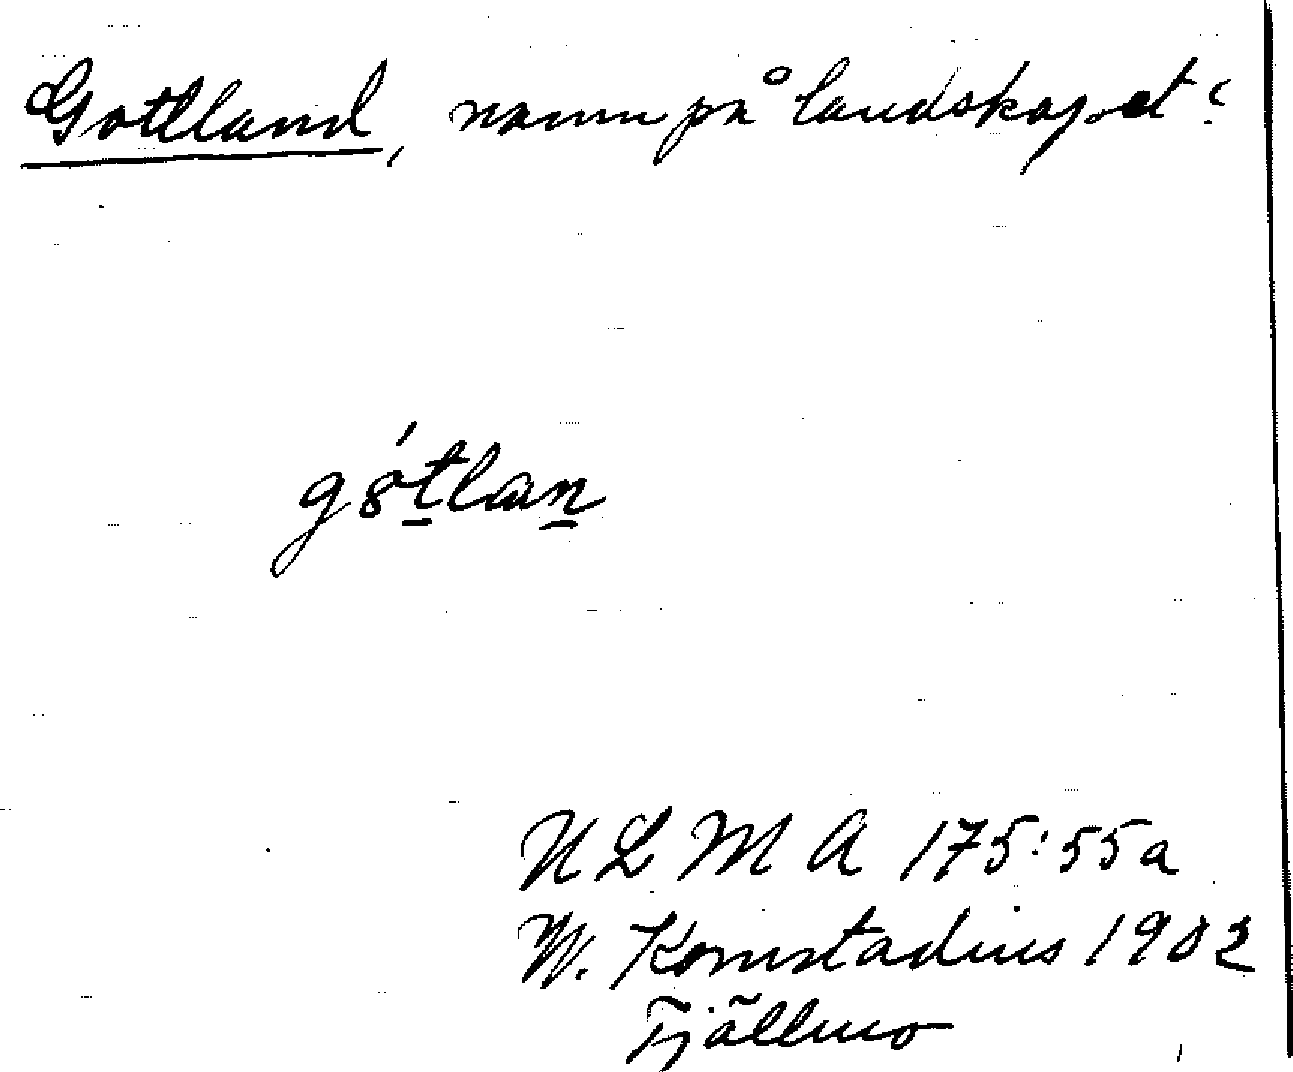 Gottland, namn på landskapet?
gó̱tlan̲
ULMA 175:55a
W. Komstadius 1902
Tjällmo